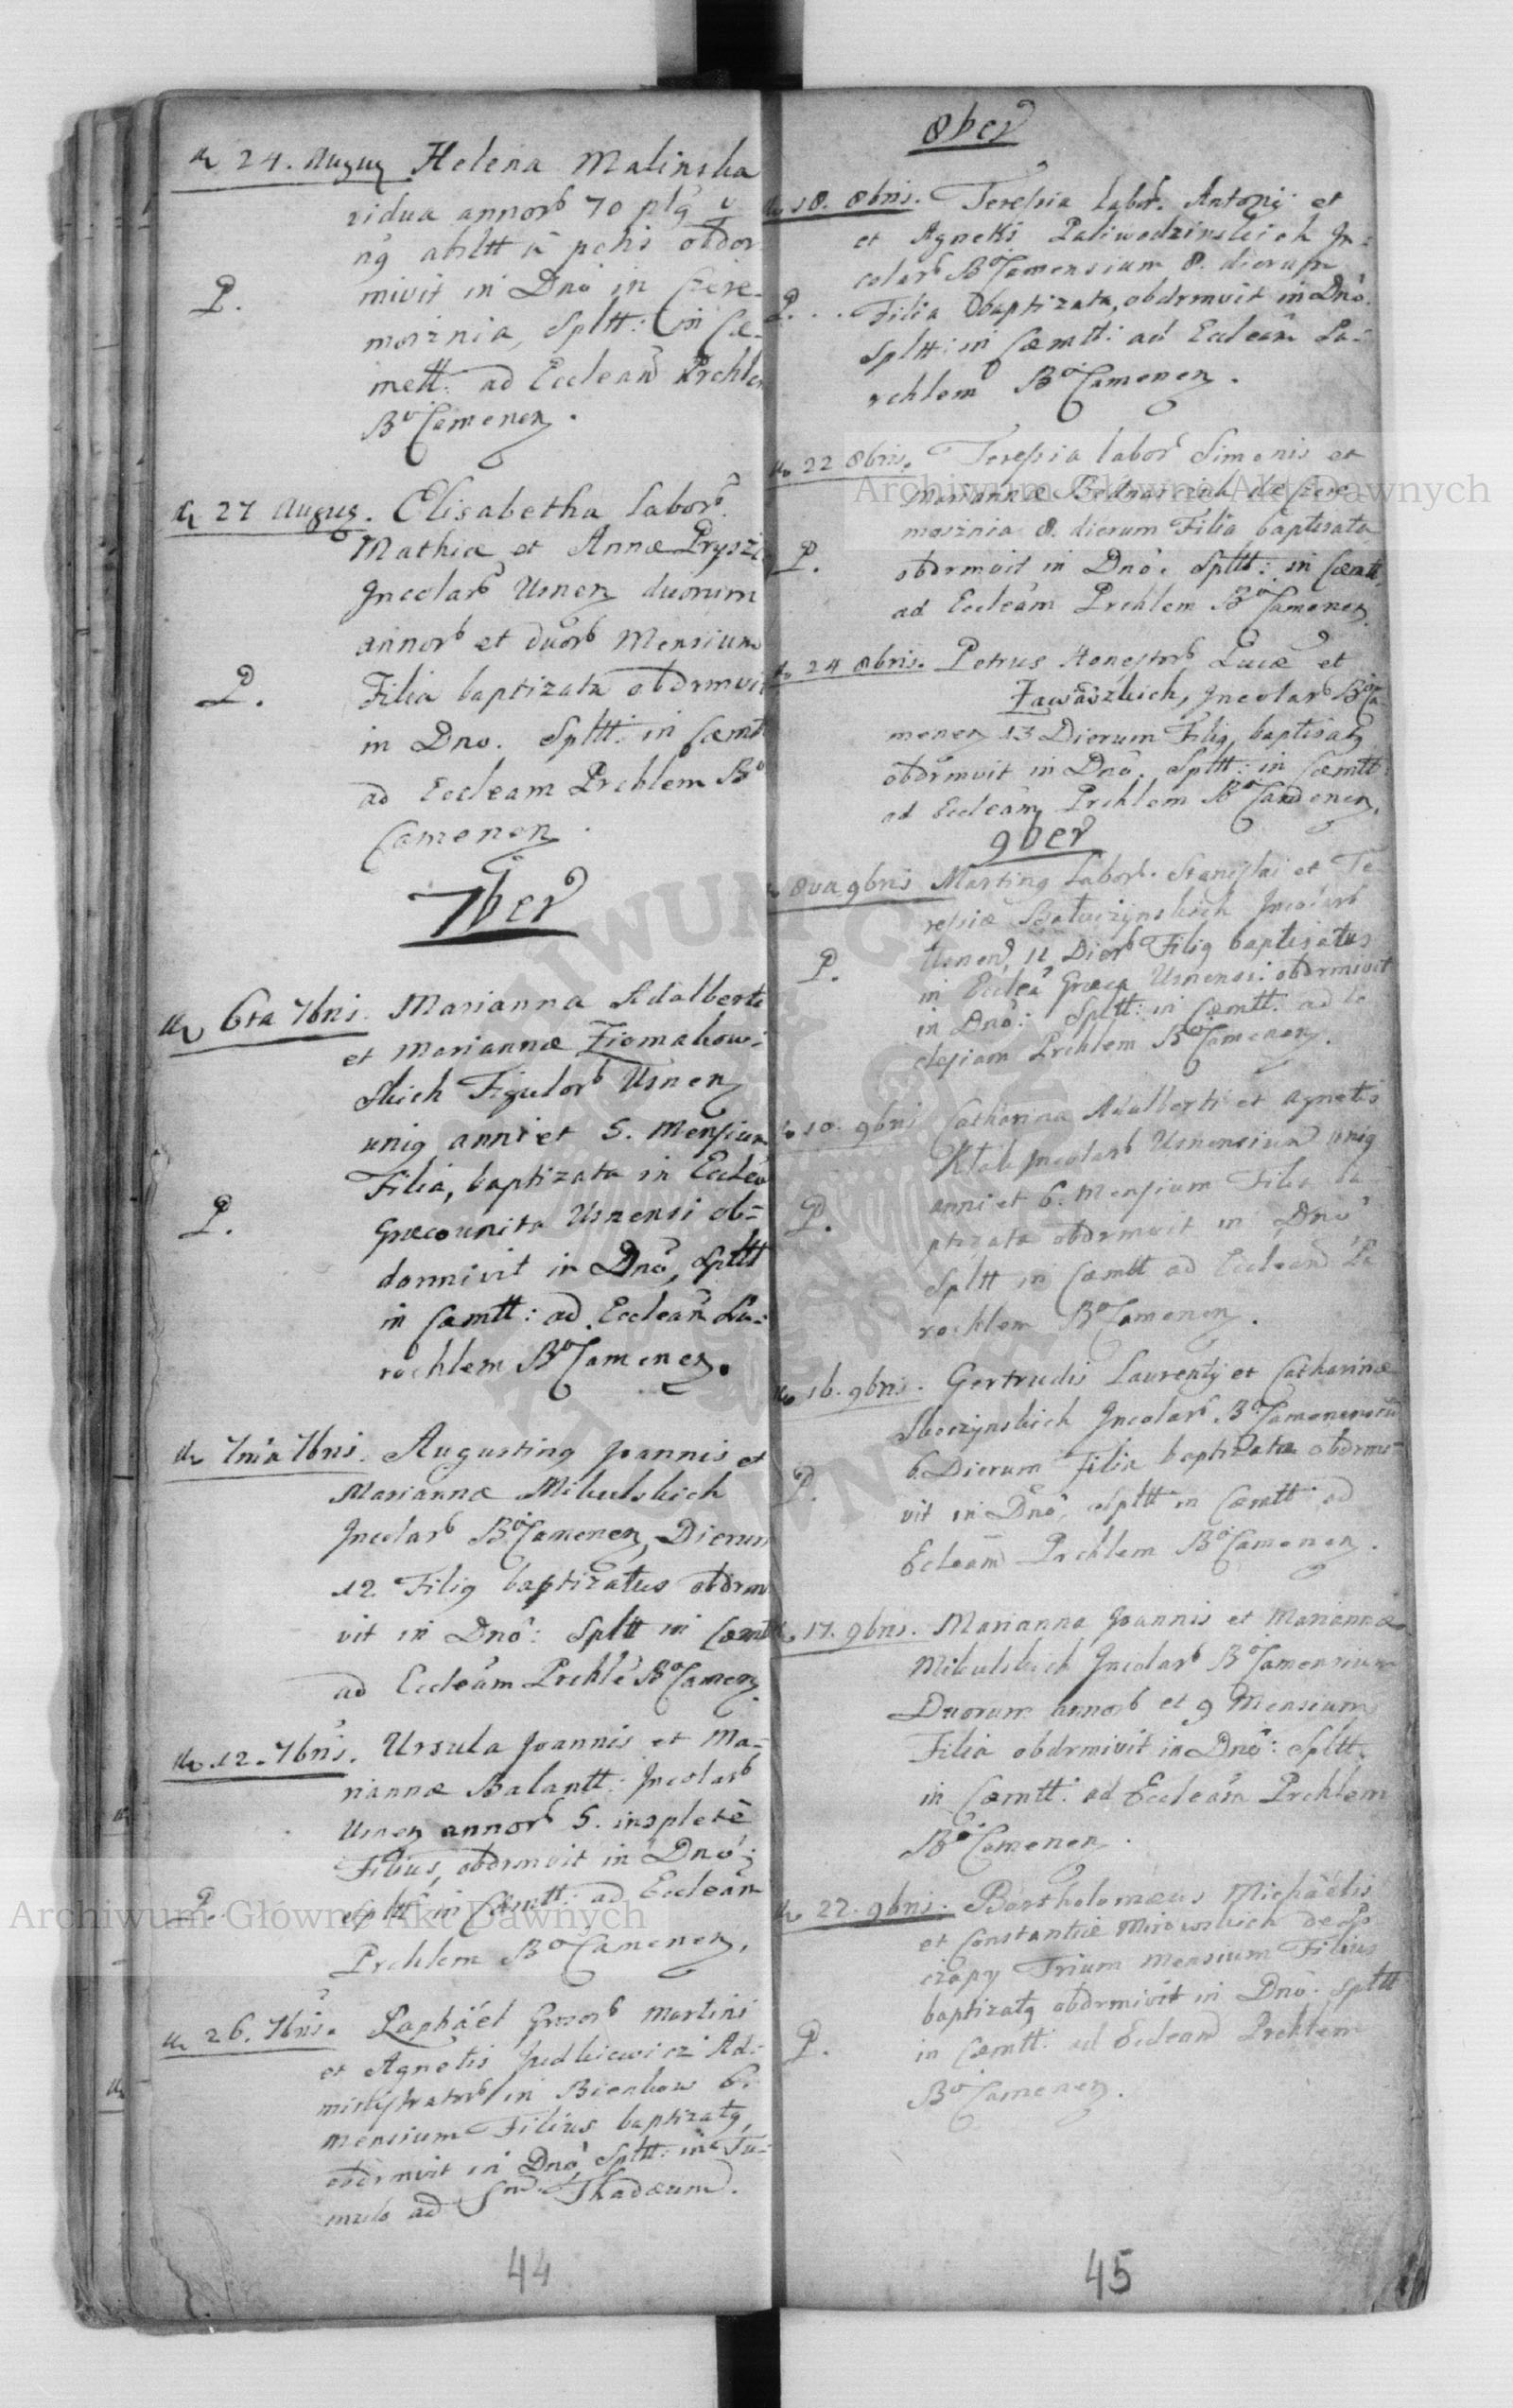 24. Augus Helena Malinska
vidua annorb 70 pl9
n9 absltt a pctis obdor
P. mivit in Dno in Czere-
mosznia, Spltt: in Cæ-
mett. ad Eccleam Prchlem
Bo Camenen.
27 Augus. Elisabetha Labor.
Mathiæ et Annæ Pryszcz
Incolarb Usnen duorum
annorb et duorb Mensium
P. Filia baptizata obdrmvit
in Dno. Spltt: in Cæmtt
ad Eccleam Prchlem Bo
Camenen.
7ber
6ta 7bris. Marianna Adalberti
et Mariannæ Ziomakow-
skich Figulorb Usnen
uni9 anni et 5. Mensium
Filia, baptizata in Eccleo
P. Græcounita Usnensi ob-
dormivit in Dno, Spltt
in Cæmtt: ad Eccleam Pa-
rochlem Bo Camenen.
7ma 7bris. Augustin9 Joannis et
Mariannæ Mikulskich
Incolarb Bo Camenen, Dierum
12 Fili9 baptizatus obdrmi
vit in Dno: Spltt in Cæmtt
ad Eccleam Prchle Bo Camen.
12. 7bris. Ursula Joannis et Ma-
riannæ Balantt: Incolarb
Usnen annorb 5. inoplete
Filius, obdrmvit in Dno;
P. Spltt in Cæmtt: ad Eccleam
Prchlem Bo Camenen.
26. 7bris. Raphäel Gnsorb Martini
et Agnetis Judkiewicz Ad-
ministratorb in Bienkow 6.
Mensium Filius baptizat9,
obdrmvit in Dno Spltt: in Tu-
mulo ad Snm Thadæum.
44
8ber
18. 8bris. Teressia Labor. Antonij et
et Agnetis Paliwodzinskich In-
colarb Bo Camensium 8. dierum
P... Filia baptizata, obdrmvit in Dno.
Spltt: in Cæmtt: ad Eccleam Pa-
rchlem Bo Camenen.
22 8bris. Teressia labor Simonis et
Mariannæ Bednarziak de Czere
mosznia 8. dierum Filia baptisata
P. obdrmvit in Dno. Spltt: in Cæmtt,
ad Eccleam Prchlem Bo Camenen.
24 8bris. Petrus Honestorb Lucæ et
Zawaszkich, Incolarb Bo Ca-
menen 13 Dierum Fili9, baptisat9
obdrmvit in Dno. Spltt: in Cæmtt:
ad Eccleam Prchlem Bo Camenen.
9ber
8va 9bris Martin9 Labor. Stanislai et Te-
ressiæ Incolarb
Usnen, 11 Dierb Fili9 baptisatus
P. in Ecclea Græca Usnensi: obdrmivit
in Dno: Spltt: in Cæmtt: ad Ec
clesiam Prchlem Bo Camenen.
10. 9bris Catharina Adalberti et Agnetis
Kłak Incolarb Usnensium uni9
anni et 6. Mensium Filia ba-
P. ptizata obdrmvit in Dno
Spltt in Cæmtt ad Eccleam Pa
rochlem Bo Camenen.
16. 9bris. Gertrudis Laurentij et Catharinæ
Skoczynskich Incolarb Bo Camenensium
6. Dierum Filia baptizata obdrmi-
P. vit in Dno, Spltt in Cæmtt ad
Ecleam Prchlem Bo Camenen.
17. 9bris. Marianna Joannis et Mariannæ
Mikulskich Incolarb Bo Camensium
Duorum annorb et 9 Mensium
Filia obdrmivit in Dno: Spltt.
in Cæmtt: ad Eccleam Prchlem
Bo Camenen.
22. 9bris. Bartholomæus Michäelis
et Constantiæ Mirowskich de Po
czapy Trium Mensium Filius
baptizat9 obdrmivit in Dno: Spltt
P. in Cæmtt: ad Eccleam Prchlem
Bo Camenen.
45
Archiwum Główne Akt Dawnych
Archiwum Główne Akt Dawnych